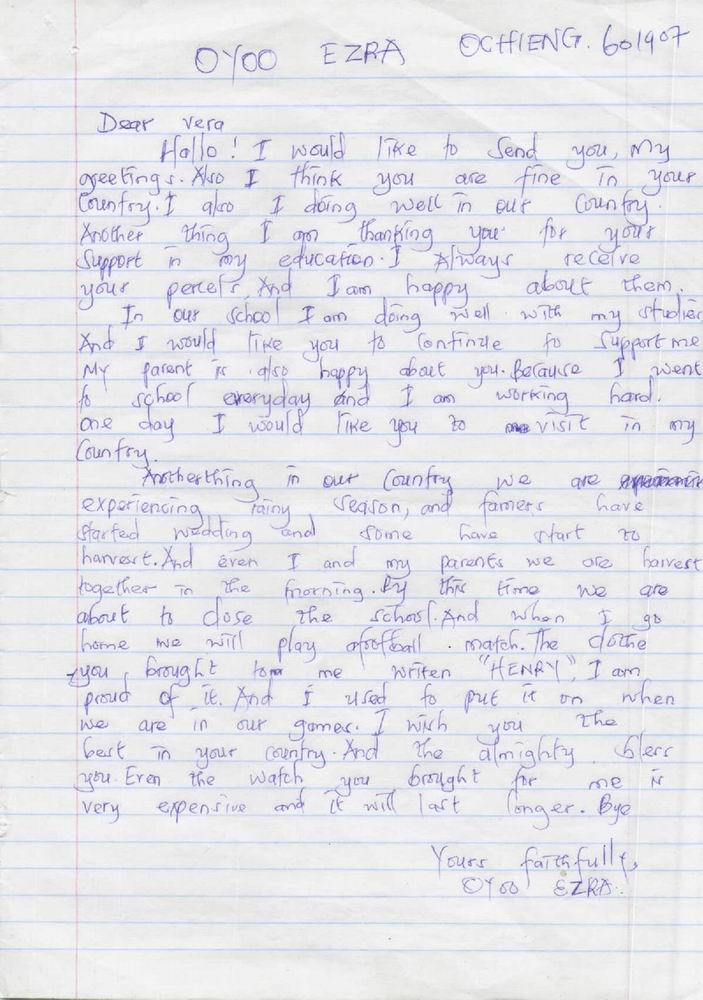 OYOO EZRA OCHIENG. 601907
Dear vera
Hallo! I would like to send you, my
greetings. Also I think you are fine in your
Country. I also I doing well in our Country.
Another thing I am thanking you for your
Support in my education. I Always receive
your percels, And I am happy about them.
In our school I am doing well with my studies
And I would like you to continue to support me
My parent is also happy about you. Because I went
to school everyday and I am working hard.
one day I would like you to visit in my
Country.
Anotherthing in our Country we are
experiencing rainy season, and famers have
started wedding and some have start to
harvest. And even I and my parents we are harvest
together in the morning. By this time we are
about to close the school. And when I go
home we will play afootball match. The clothe
you brought to me writen "HENRY", I am
proud of it. And I used to put it on when
we are in our games. I wish you the
best in your country. And the almighty bless
you. Even the watch you brought for me is
very expensive and it will last longer. Bye
Yours faithfully,
OYOO EZRA.